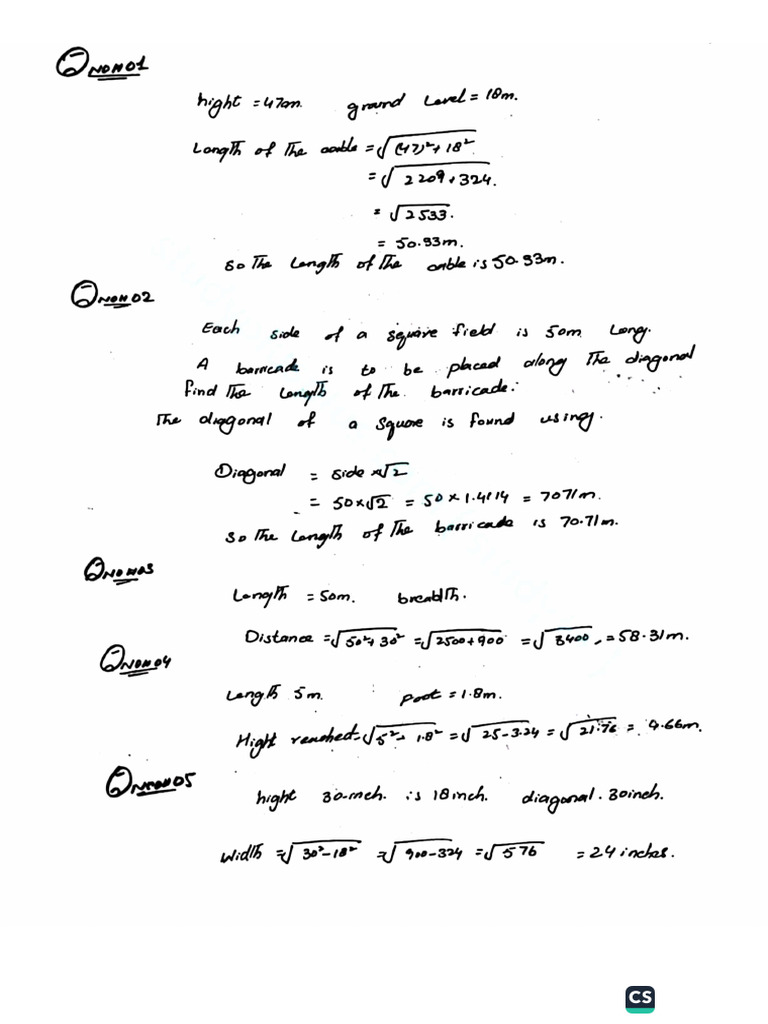 Q NO# 01
hight = 47cm. ground Level = 18m.
Length of The cable = √(47)²+18²
= √2209+324.
= √2533.
= 50.33m.
so The Length of The cable is 50.33m.
Q NO# 02
Each side of a square field is 50m Long.
A barricade is to be placed along The diagonal
find The Length of The barricade:
The diagonal of a square is found using.
Diagonal = side ×√2
= 50×√2 = 50×1.4114 = 7071m.
so The Length of The barricade is 70.71m.
Q NO# 03
Length = 50m. breadth.
Distance = √50²+30² = √2500+900 = √3400 = 58.31m.
Q NO# 04
Length 5m. poot = 1.8m.
Hight reached = √5²- 1.8² = √25-3.24 = √21.76 = 4.66m.
Q NO# 05
hight 30-inch. is 18inch. diagonal. 30inch.
Width = √30²-18² = √900-324 = √576 = 24 inches.
CS